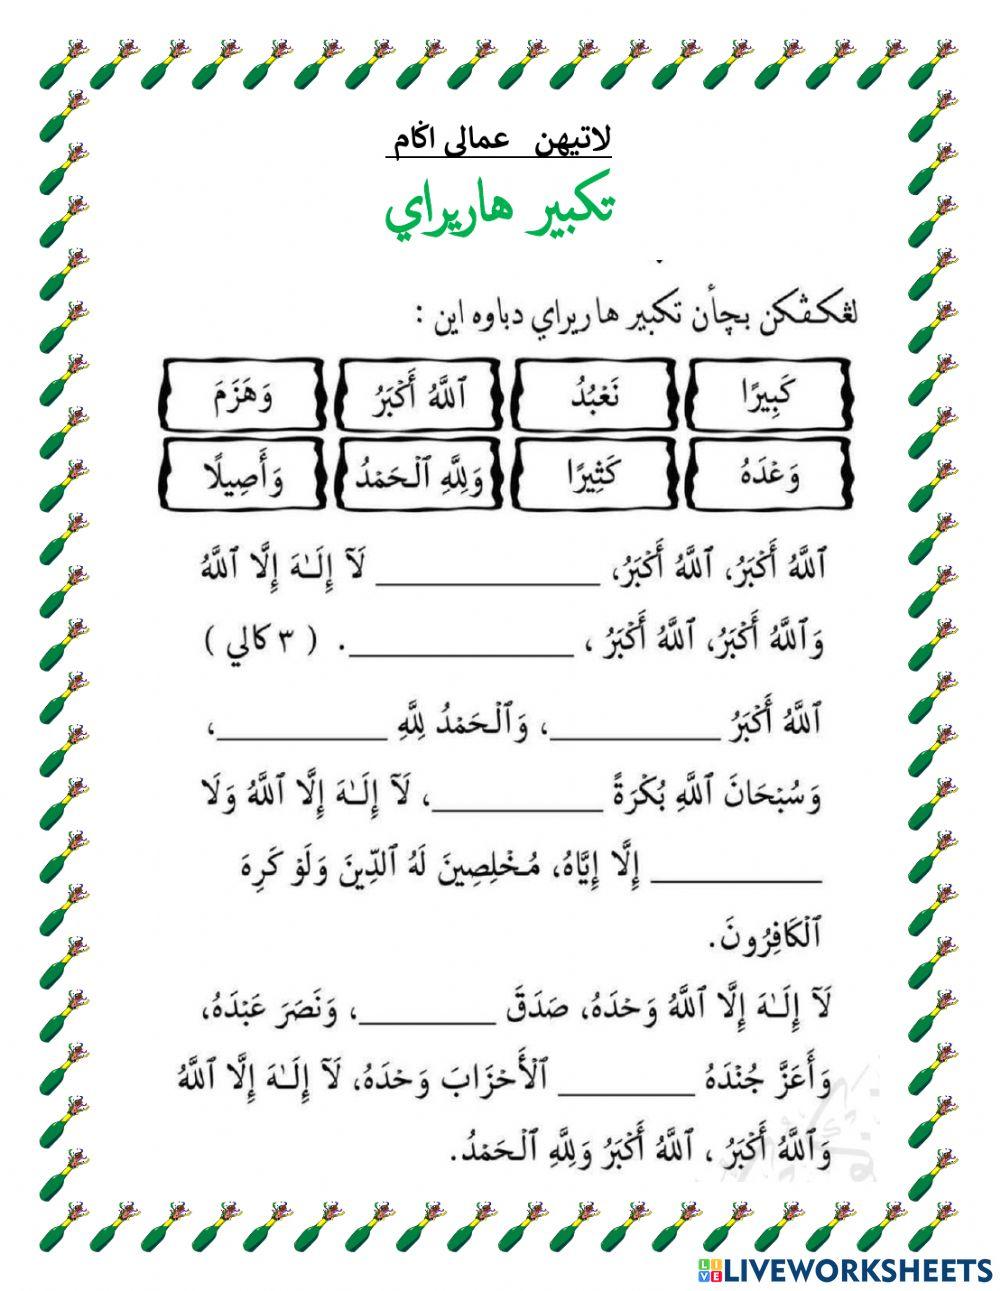 لاتيهن عمالى اݢام
تكبير هاريراي
لڠكڤكن بچأن تكبير هاريراي دباوه اين :
كَبِيرًا نَعْبُدُ ٱللَّهُ أَكْبَرُ وَهَزَمَ
وَعْدَهُ كَثِيرًا وَلِلَّهِ ٱلْحَمْدُ وَأَصِيلًا
ٱللَّهُ أَكْبَرُ، ٱللَّهُ أَكْبَرُ، ____________ لَآ إِلَـٰهَ إِلَّا ٱللَّهُ
وَٱللَّهُ أَكْبَرُ، ٱللَّهُ أَكْبَرُ ، ____________. ( ٣ كالي )
ٱللَّهُ أَكْبَرُ _________، وَٱلْحَمْدُ لِلَّهِ _________،
وَسُبْحَانَ ٱللَّهِ بُكْرَةً _________، لَآ إِلَـٰهَ إِلَّا ٱللَّهُ وَلَا
_________ إِلَّا إِيَّاهُ، مُخْلِصِينَ لَهُ ٱلدِّينَ وَلَوْ كَرِهَ
ٱلْكَافِرُونَ.
لَآ إِلَـٰهَ إِلَّا ٱللَّهُ وَحْدَهُ، صَدَقَ _______، وَنَصَرَ عَبْدَهُ،
وَأَعَزَّ جُنْدَهُ _______ ٱلْأَحْزَابَ وَحْدَهُ، لَآ إِلَـٰهَ إِلَّا ٱللَّهُ
وَٱللَّهُ أَكْبَرُ ، ٱللَّهُ أَكْبَرُ وَلِلَّهِ ٱلْحَمْدُ.
LIVEWORKSHEETS